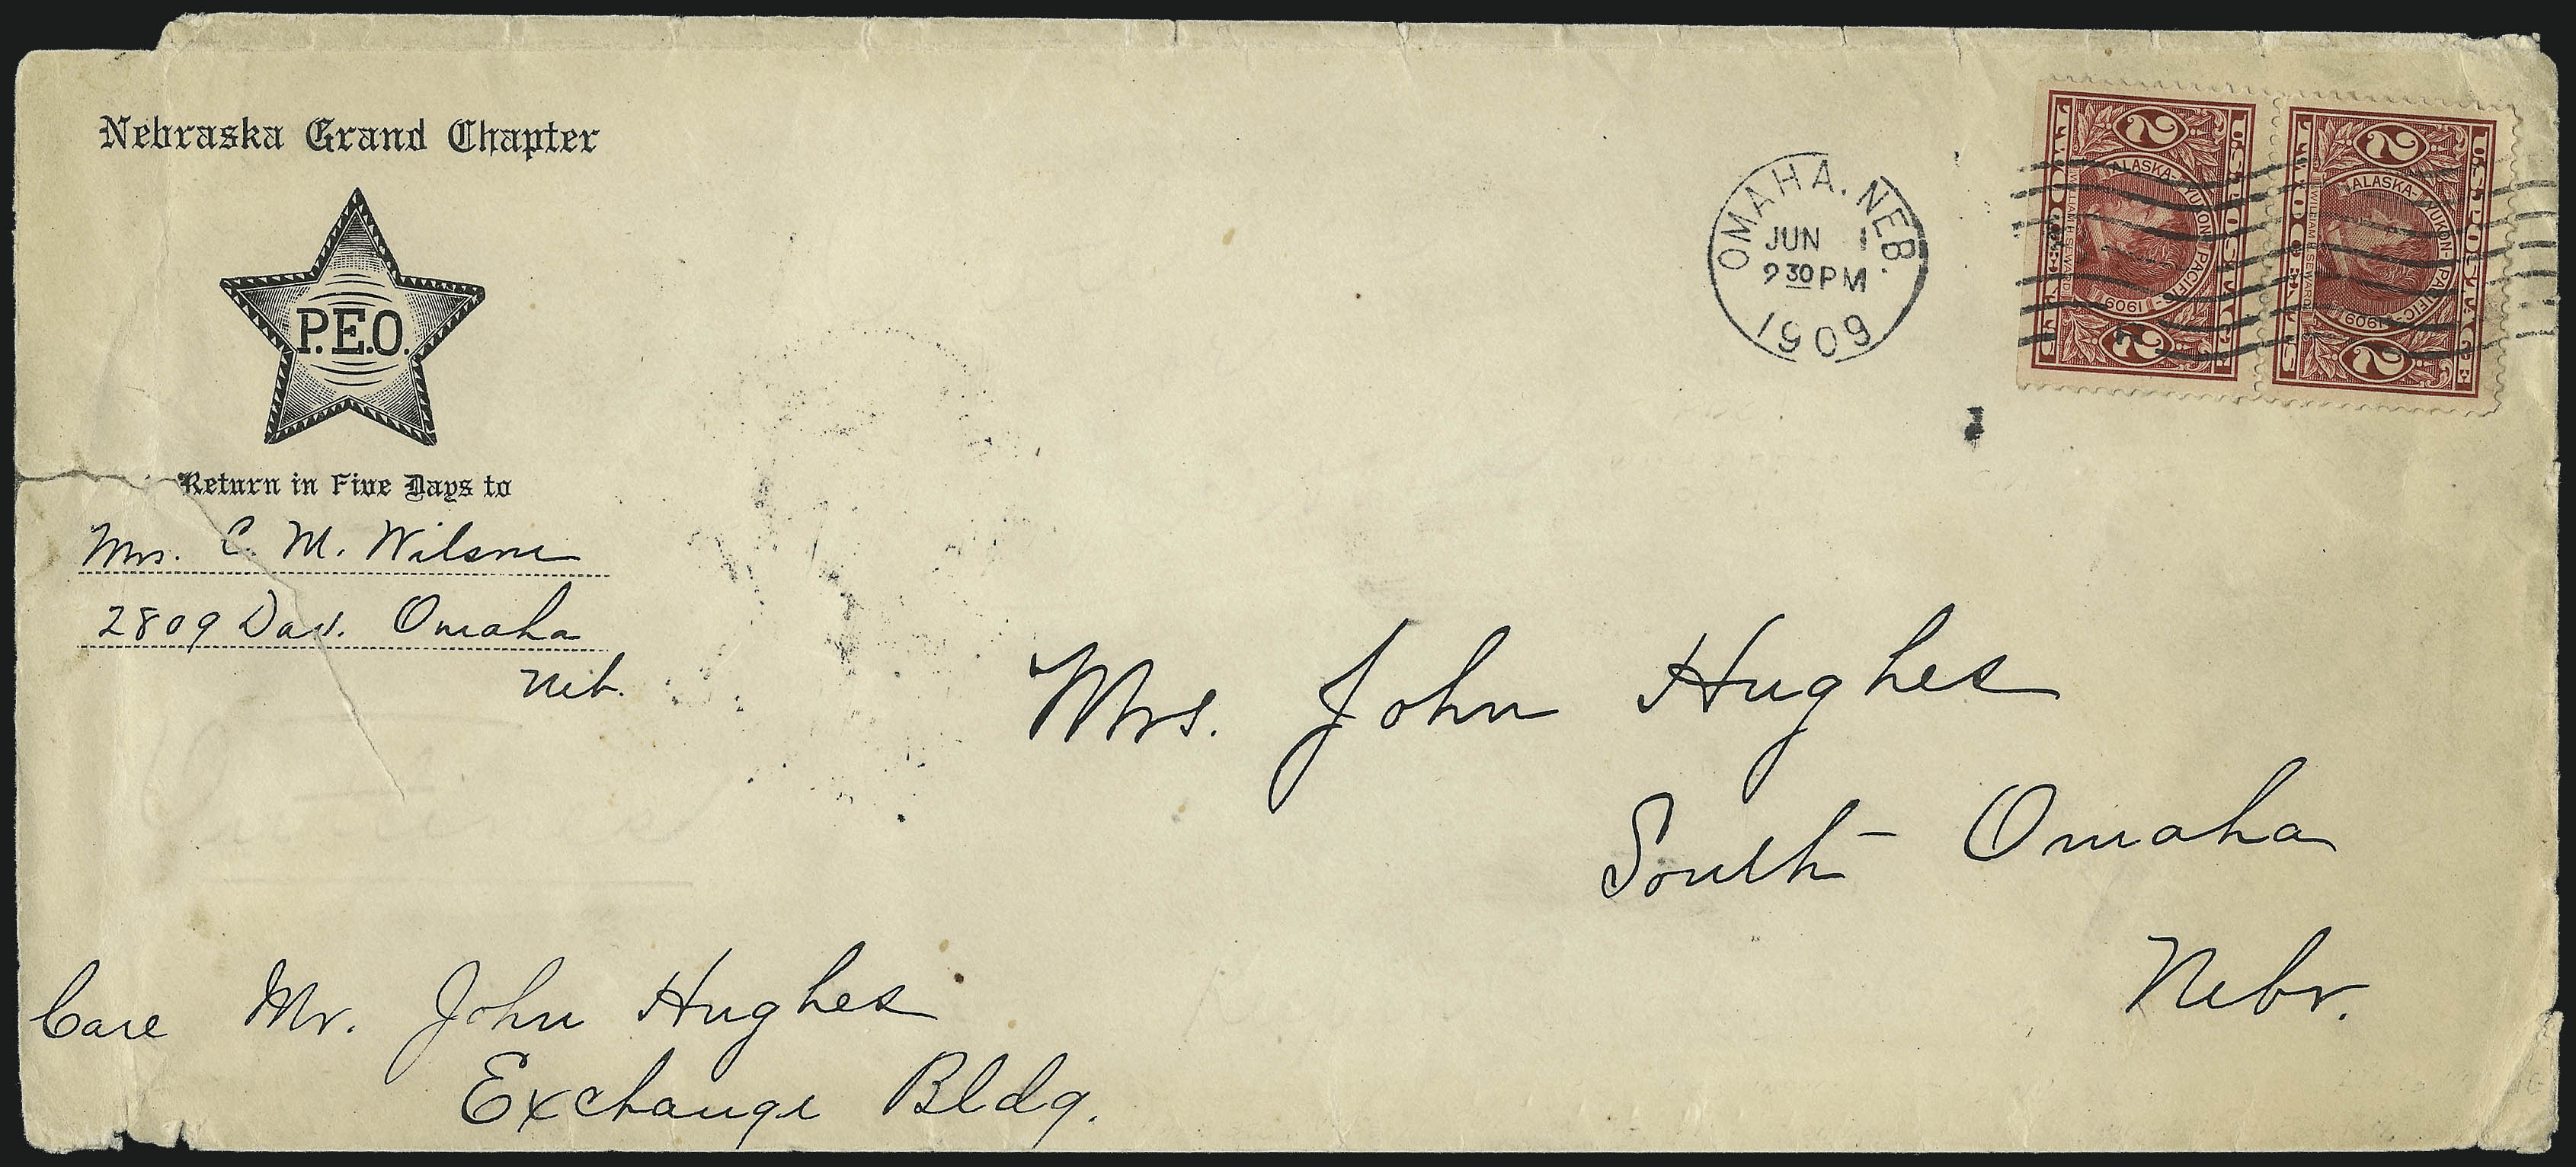 Nebraska Grand Chapter
P.E.O.
Return in Five Days to
Mrs. C. M. Wilson
2809 Dav. Omaha
Neb.
OMAHA. NEB.
JUN 1
9 30 PM
1909
U.S. POSTAGE
2 2
ALASKA-YUKON-PACIFIC-
1909
WILLIAM H. SEWARD
TWO CENTS
U.S. POSTAGE
2 2
ALASKA-YUKON-PACIFIC-
1909
WILLIAM H. SEWARD
TWO CENTS
Mrs. John Hughes
South Omaha
Nebr.
Care Mr. John Hughes
Exchange Bldg.